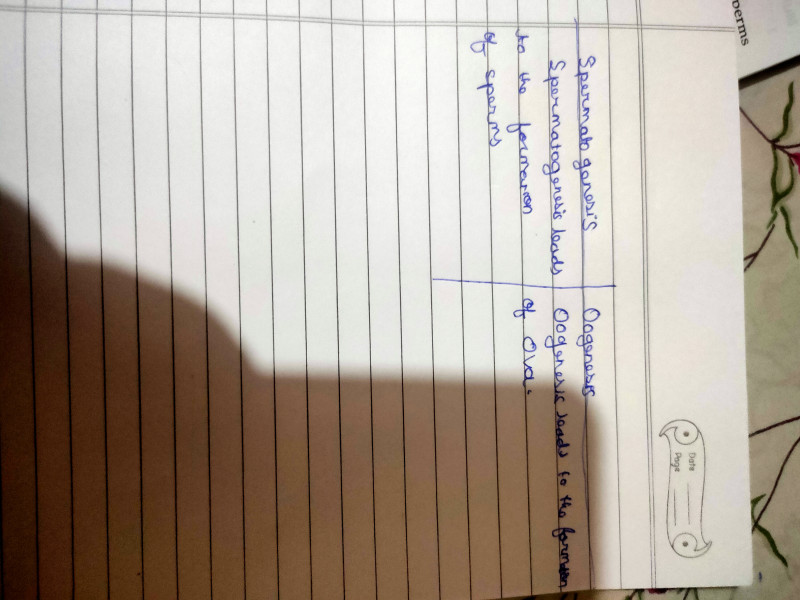 perms
Date
Page
Spermatogenesis
Oogenesis
Spermatogenesis leads
to the formation
of sperms
Oogenesis leads to the formation
of Ova.